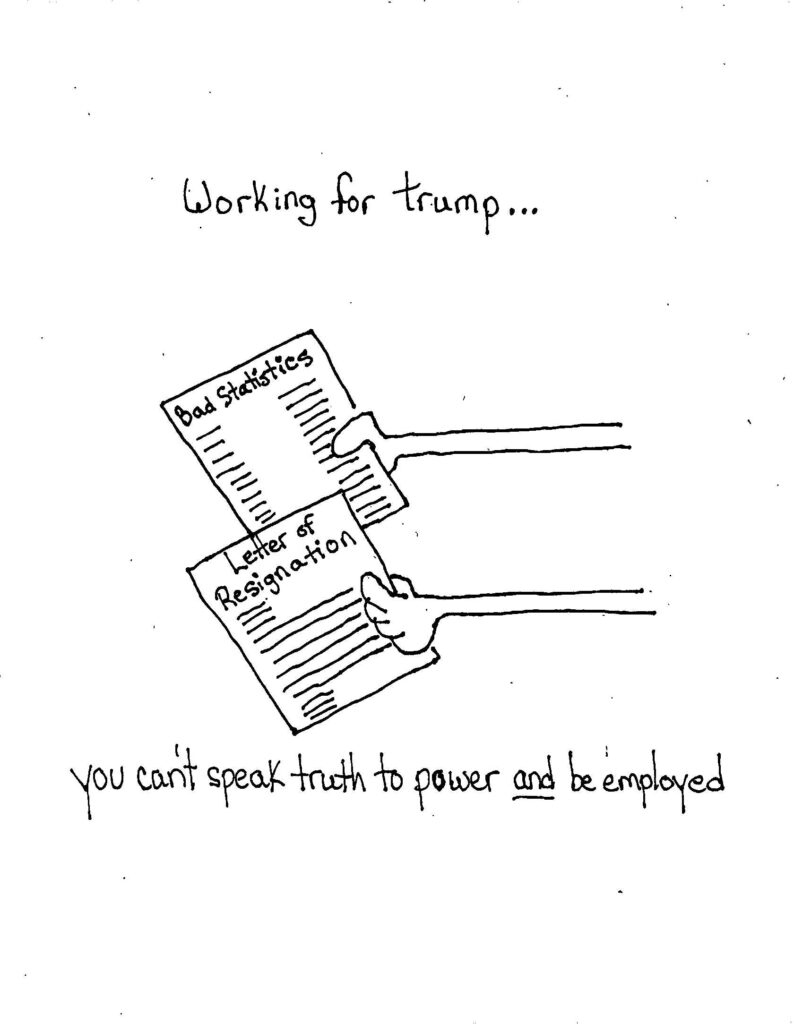 Working for trump...
Bad Statistics
Letter of
Resignation
you can't speak truth to power and be employed